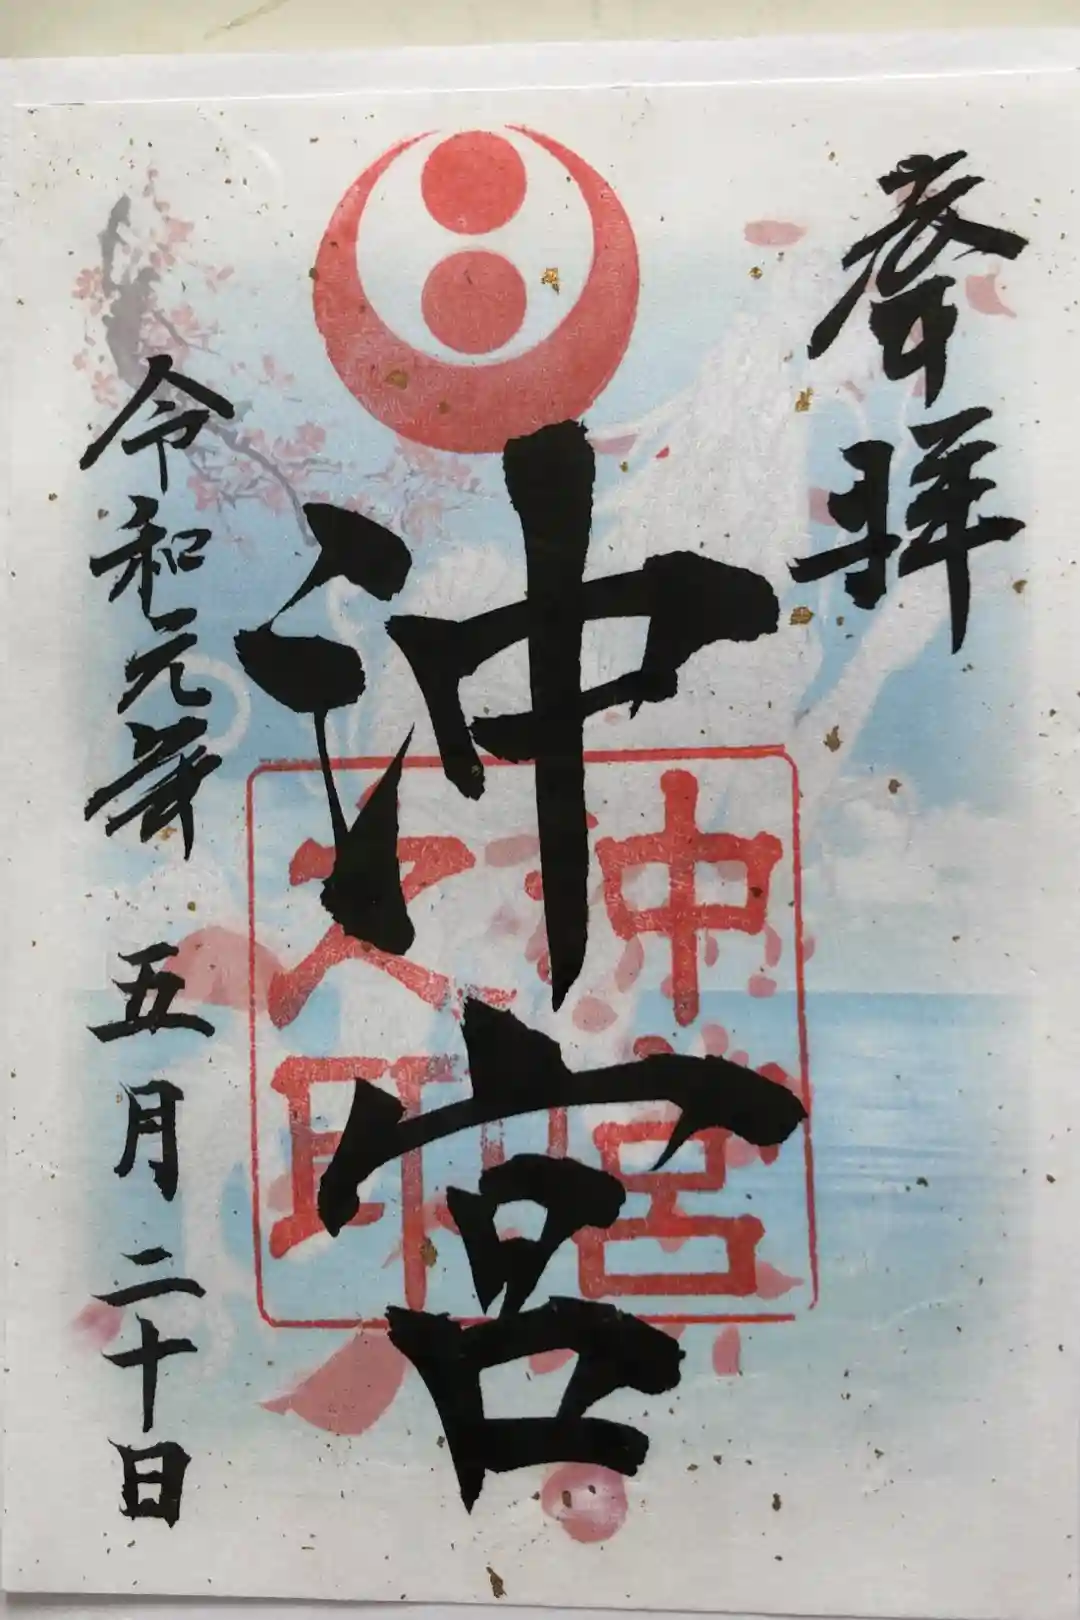 奉拝
沖宮
沖宮
之印
令和元年五月二十日